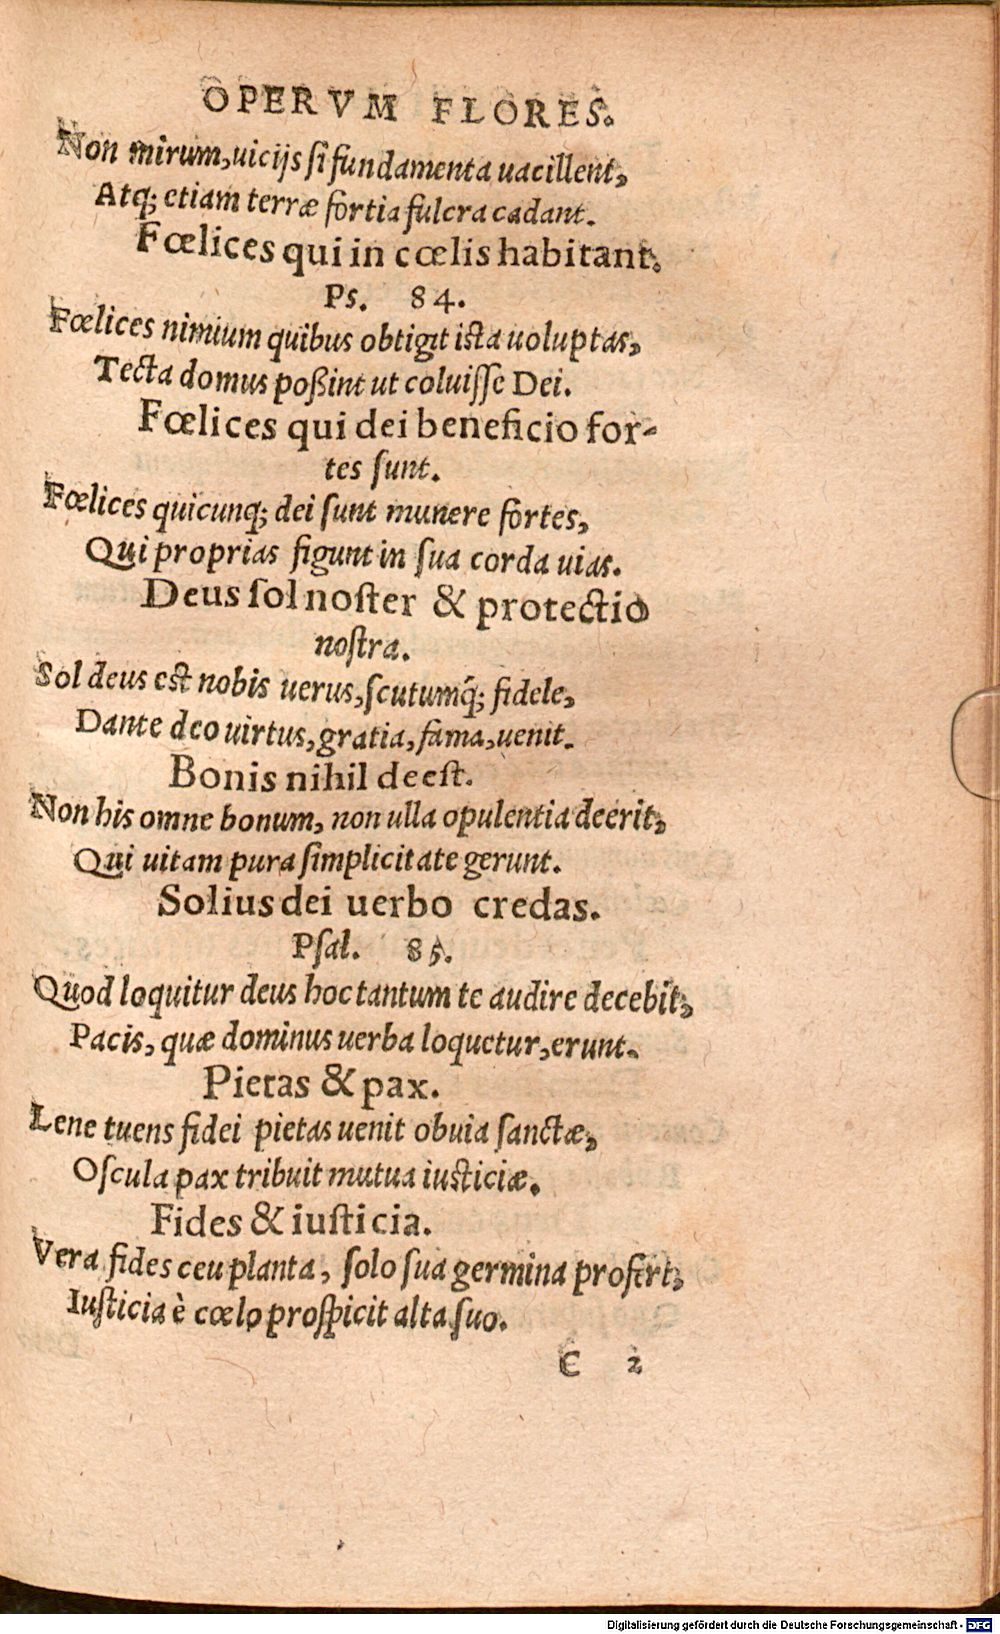 OPERVM FLORES.
Non mirum, uicijs si fundamenta uacillent,
Atq; etiam terræ fortia fulcra cadant.
Fœlices qui in cœlis habitant.
Ps. 84.
Fœlices nimium quibus obtigit ista uoluptas,
Tecta domus poßint ut coluisse Dei.
Fœlices qui dei beneficio for-
tes sunt.
Fœlices quicunq; dei sunt munere fortes,
Qui proprias figunt in sua corda uias.
Deus sol noster & protectio
nostra.
Sol deus est nobis uerus, scutumq́; fidele,
Dante deo uirtus, gratia, fama, uenit.
Bonis nihil deest.
Non his omne bonum, non ulla opulentia deerit,
Qui uitam pura simplicitate gerunt.
Solius dei uerbo credas.
Psal. 85.
Quod loquitur deus hoc tantum te audire decebit,
Pacis, quæ dominus uerba loquetur, erunt.
Pietas & pax.
Lene tuens fidei pietas uenit obuia sanctæ,
Oscula pax tribuit mutua iusticiæ.
Fides & iusticia.
Vera fides ceu planta, solo sua germina profert,
Iusticia è cœlo prospicit alta suo.
C 2
Digitalisierung gefördert durch die Deutsche Forschungsgemeinschaft - DFG